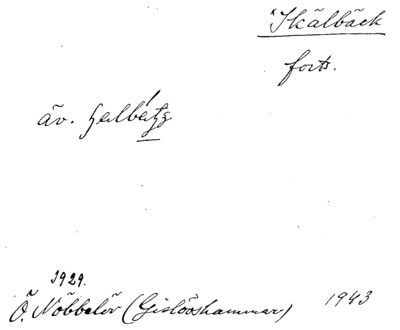 *Skälbäck
forts.
äv.
1929.
Ö. Nöbbelöv (Gislövshammar) 1943